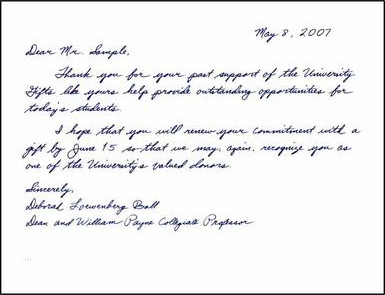 May 8, 2007
Dear Mr. Sample,
Thank you for your past support of the University
Gifts like yours help provide outstanding opportunities for
today's students.
I hope that you will renew your commitment with a
gift by June 15 so that we may, again, recognize you as
one of the University's valued donors.
Sincerely,
Deborah Loewenberg Ball
Dean and William Payne Collegiate Professor